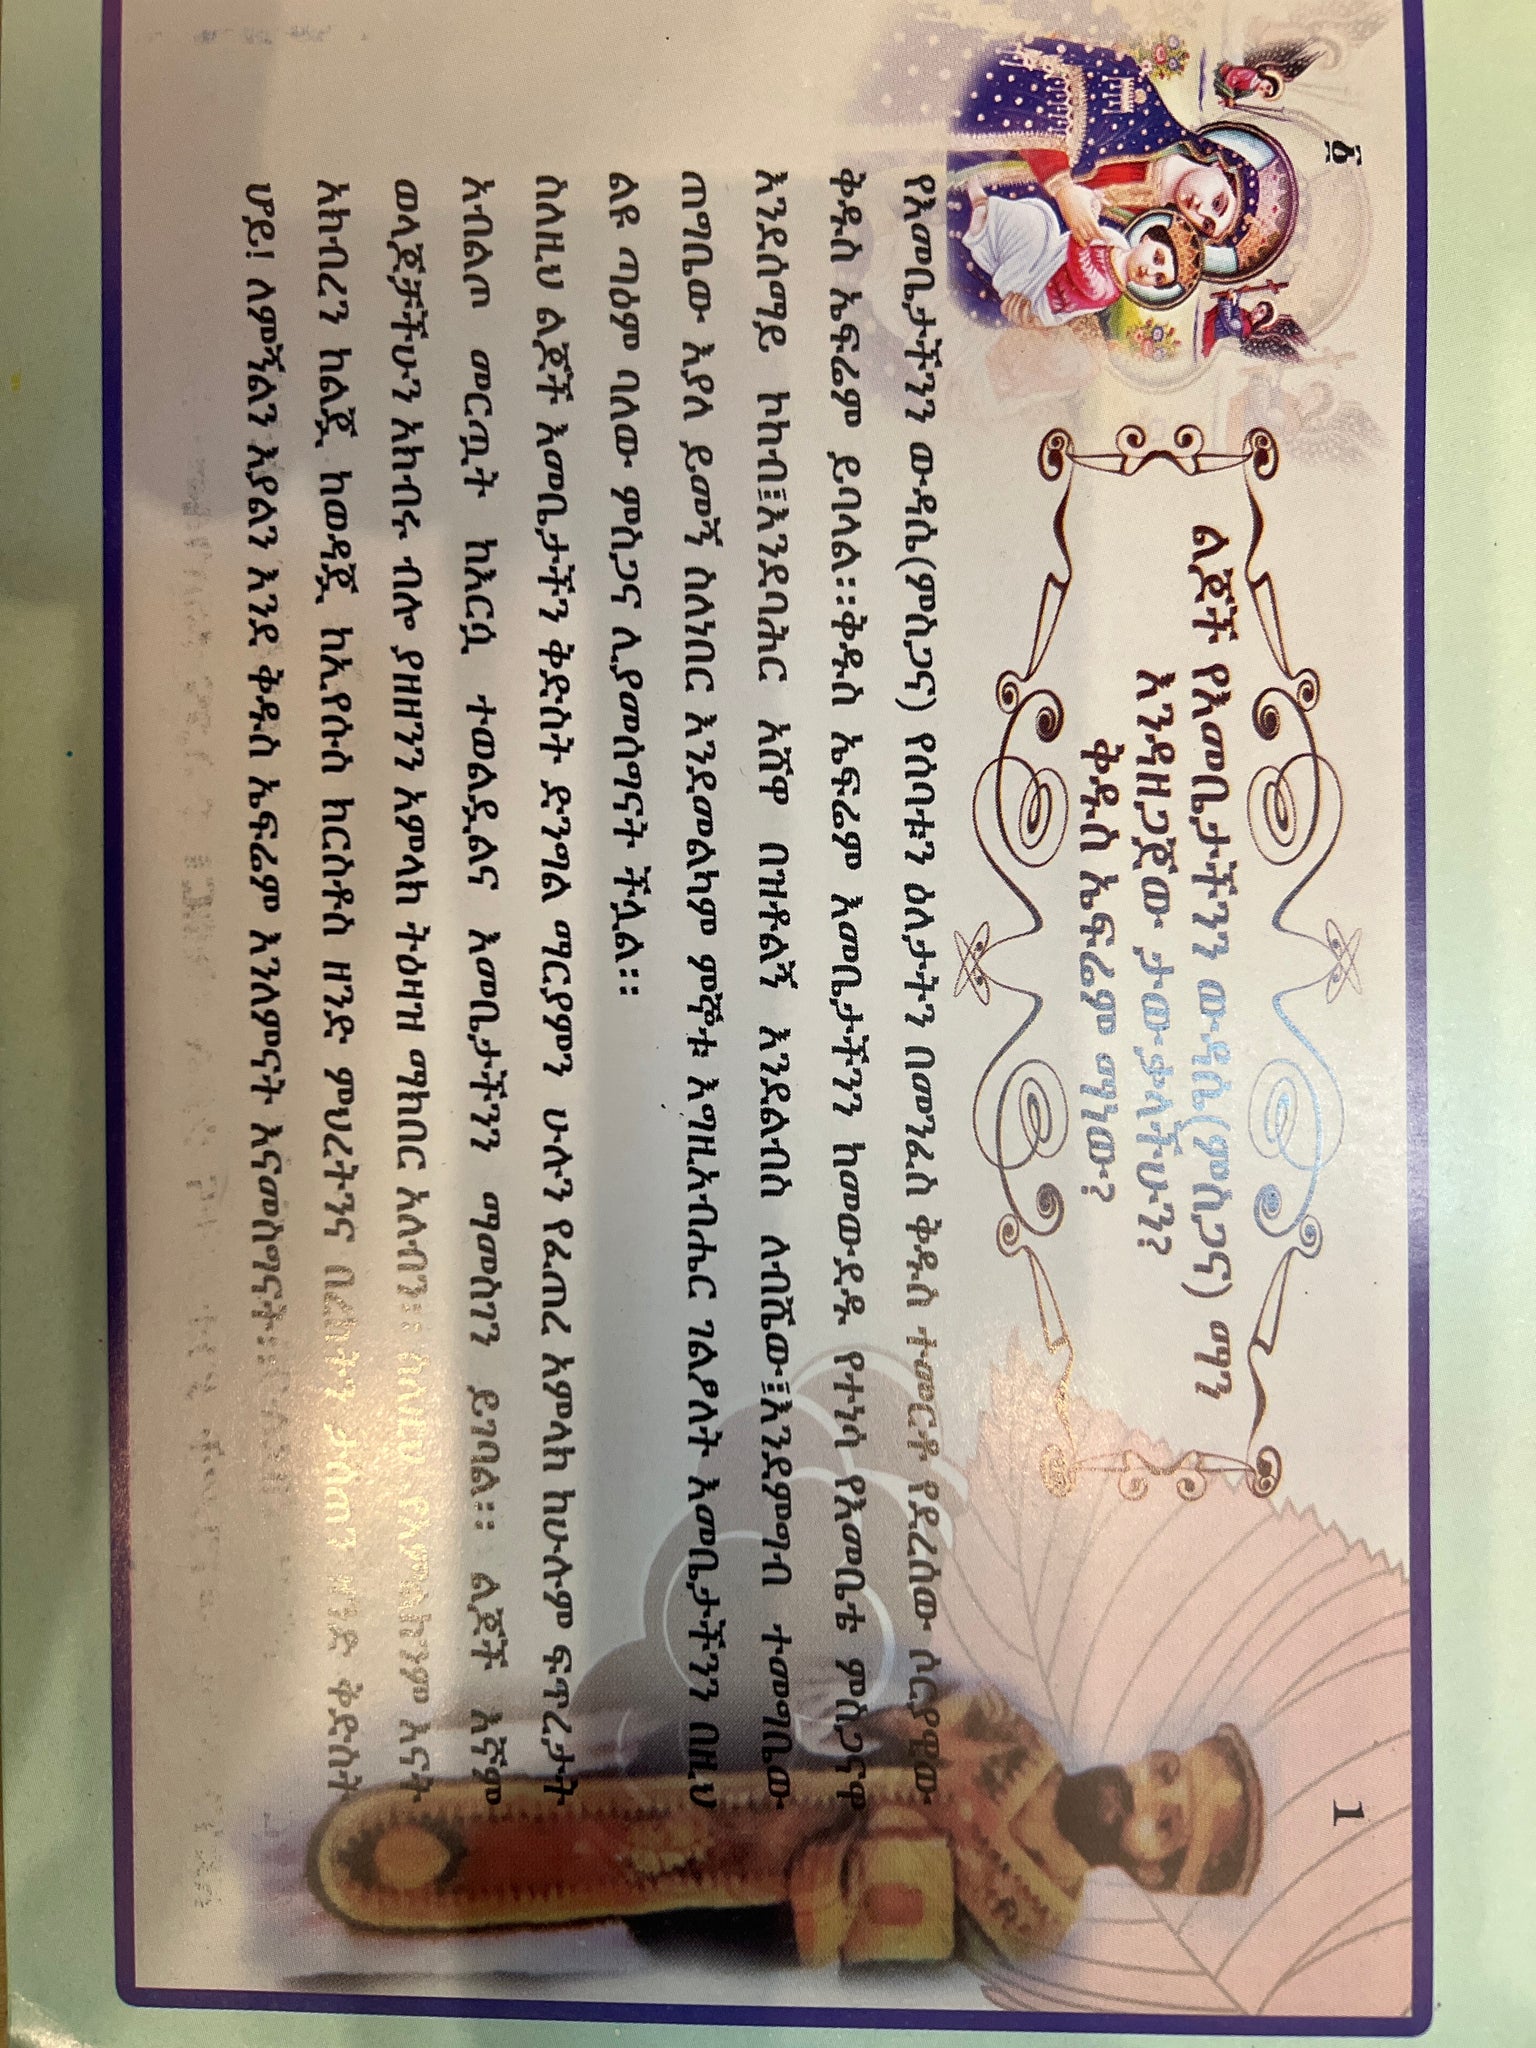 ፩
1
ልጆች የእመቤታችንን ውዳሴ(ምስጋና) ማን
እንዳዘጋጀው ታውቃላችሁን?
ቅዱስ ኤፍሬም ማነው?
የእመቤታችንን ውዳሴ(ምስጋና) የሰባቱን ዕለታትን በመንፈስ ቅዱስ ተመርቶ የደረሰው ሶርያዊው
ቅዱስ ኤፍሬም ይባላል፡፡ቅዱስ ኤፍሬም እመቤታችንን ከመውደዱ የተነሳ የእመቤቴ ምስጋናዋ
እንደሰማይ ከከብ፤እንደባሕር አሸዋ በዝቶልኝ እንደልብስ ለብሼው፤እንደምግብ ተመግቤው
ጠግቤው እያለ ይመኝ ስለነበር እንደመልካም ምኞቱ እግዚአብሔር ገልፆለት እመቤታችንን በዚህ
ልዩ ጣዕም ባለው ምስጋና ሊያመሰግናት ችሏል፡፡
ስለዚህ ልጆች እመቤታችን ቅድስት ድንግል ማርያምን ሁሉን የፈጠረ አምላክ ከሁሉም ፍጥረታት
አብልጦ መርጧት ከእርሷ ተወልዷልና እመቤታችንን ማመስገን ይገባል፡፡ ልጆች እኛም
ወላጆቻችሁን አክብሩ ብሎ ያዘዘንን አምላክ ትዕዛዝ ማክበር አለብን፡፡ ስለዚህ የአምላክንም እናት
አክብረን ከልጇ ከወዳጇ ከኢየሱስ ክርስቶስ ዘንድ ምህረትንና በረከትን ታሰጠን ዘንድ ቅድስት
ሆይ! ለምኝልን እያልን እንደ ቅዱስ ኤፍሬም እንለምናት እናመስግናት፡፡